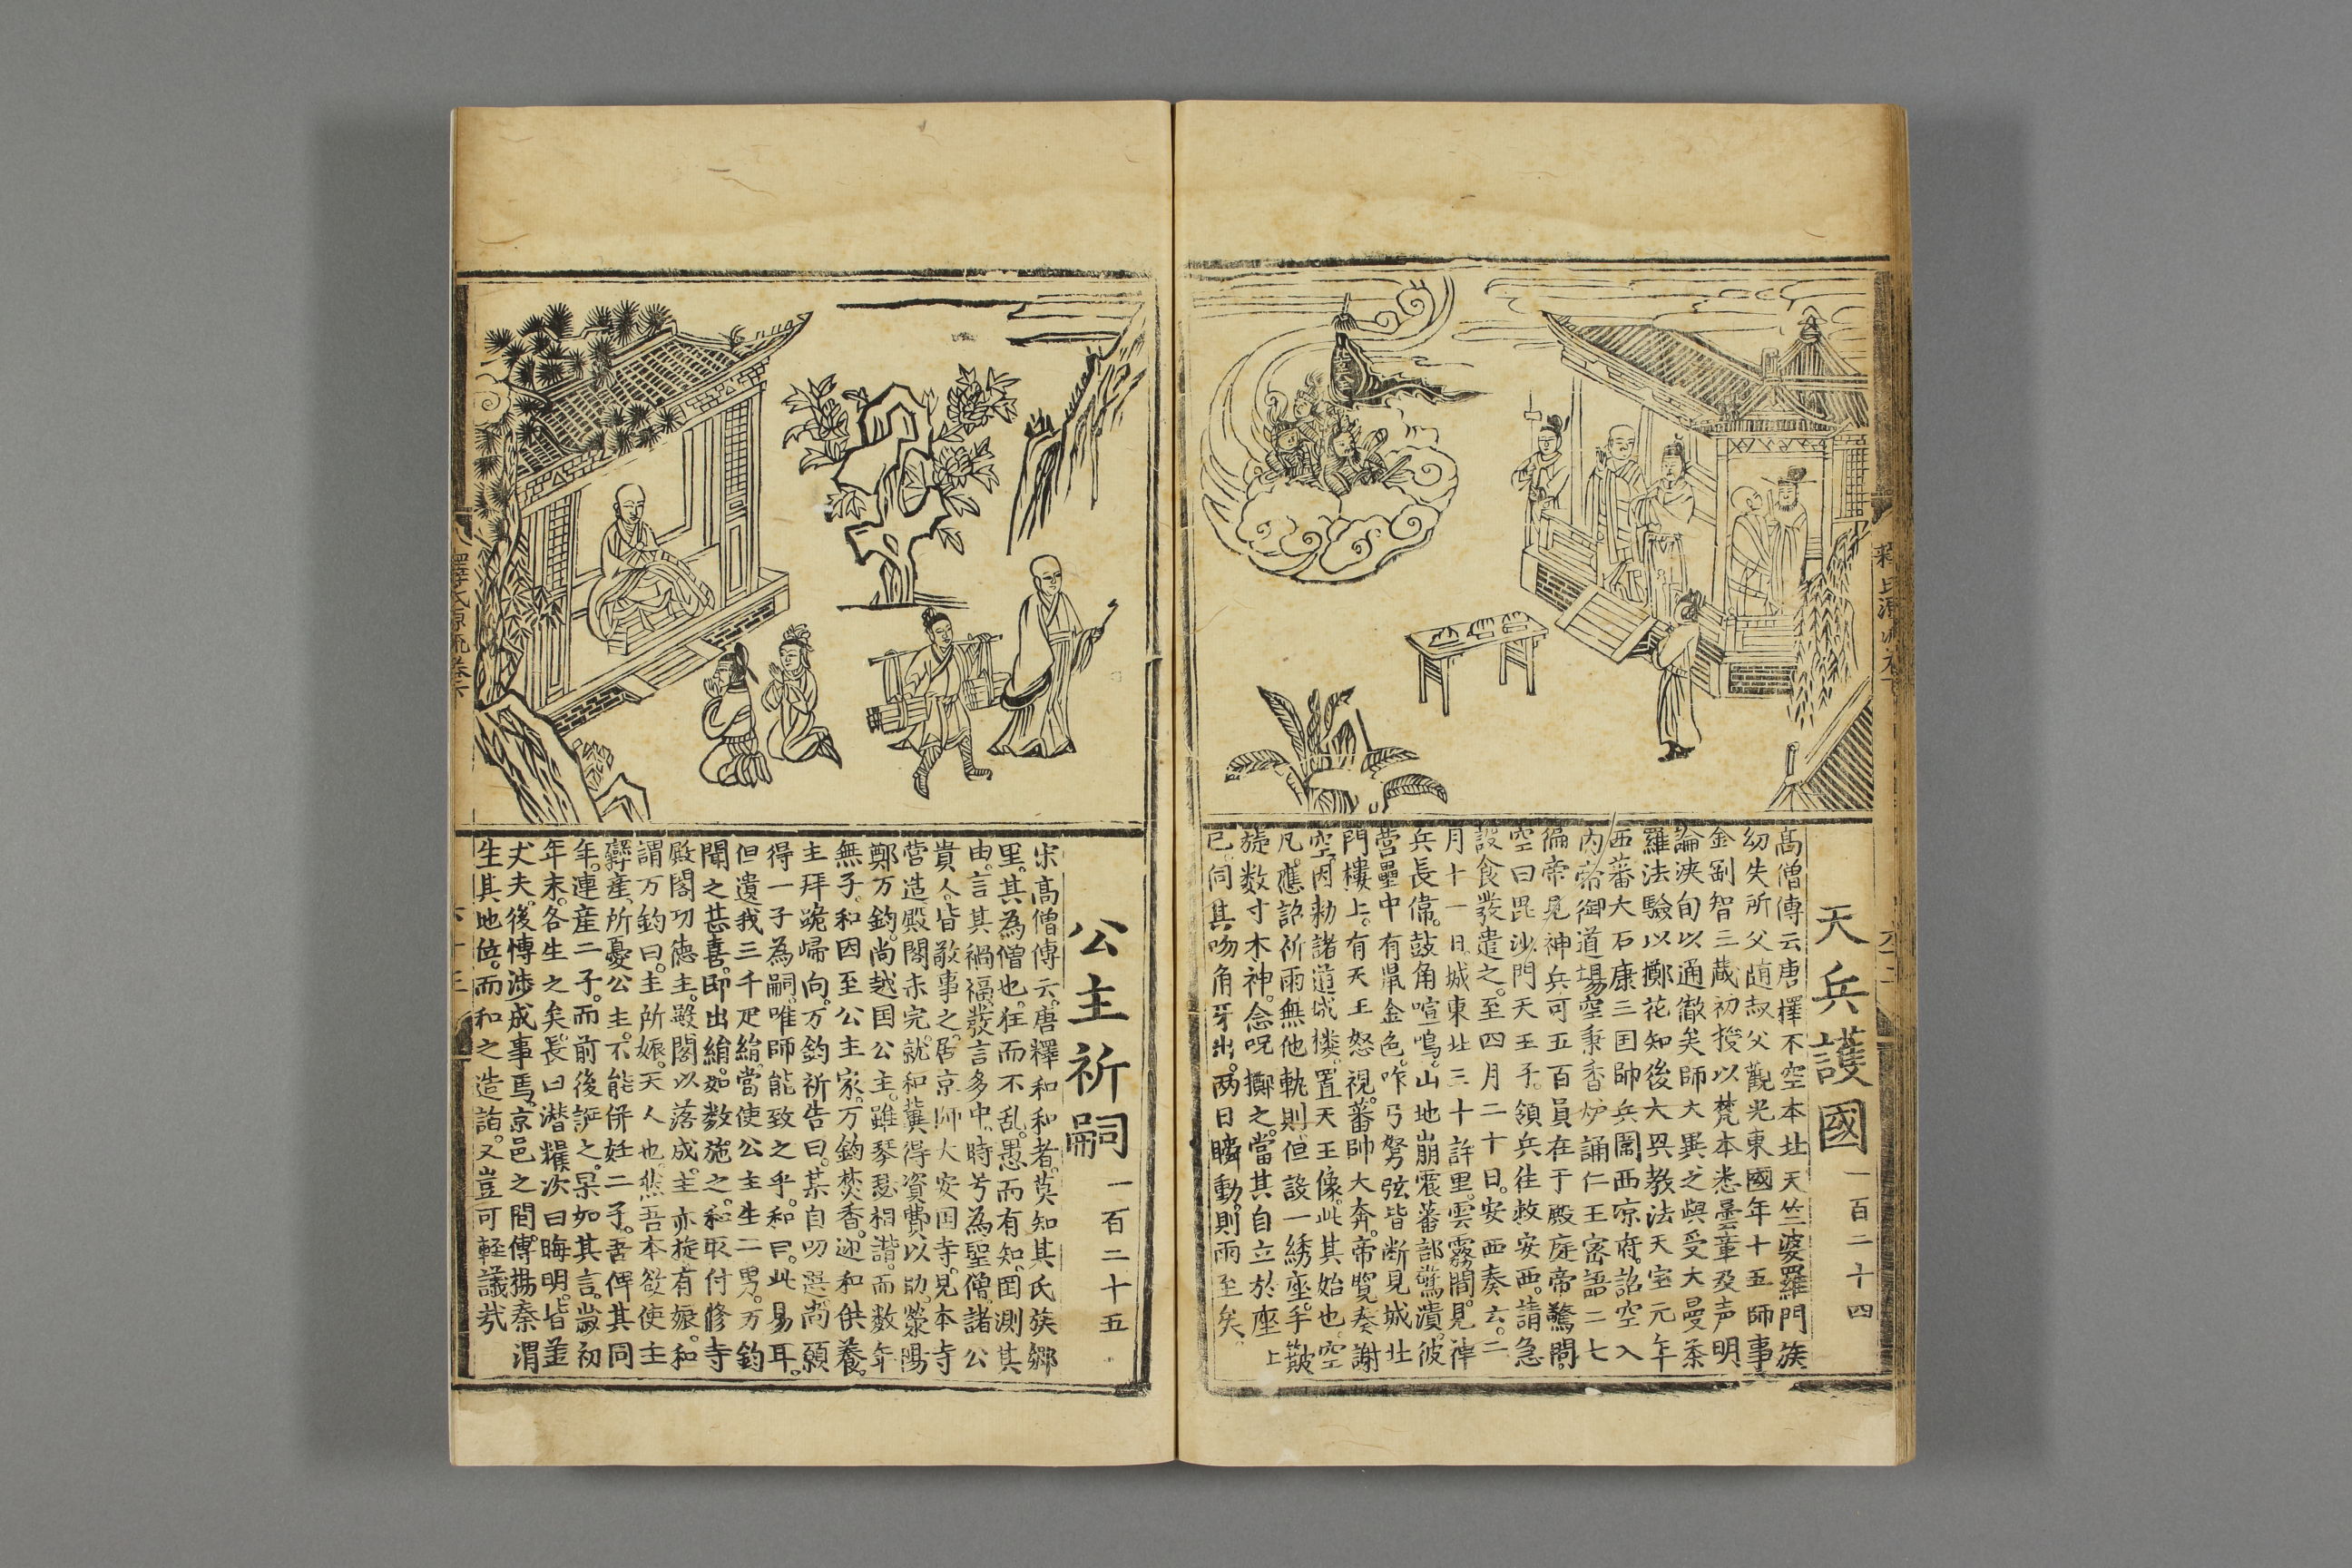 天兵護國一百二十四
高僧傳云唐擇不空本北天竺婆羅門族
幼失所父随叔父觀光東國年十五師事
金剛智三蔵初授以梵本悉曇章及声明
論浃旬以通徹矣師大異之與受大曼荼
羅法驗以擲花知後大興教法天宝元年
西蕃大石康三国帥兵圍西凉府。詔空入
内帝御道場空秉香炉誦仁王密語二七
徧帝見神兵可五百員在于殿庭帝驚問。
空曰毘沙門天王子。領兵往救安西。請急
設食發遣之。至四月二十日。安西奏云。二
月十一日。城東北三十許里。雲霧間。見神
兵長偉。鼓角喧鳴。山地崩震蕃部驚潰。彼
營壘中有鼠金色。咋弓弩弦皆断見城北
門樓上。有天王怒視。蕃帥大奔。帝覽奏謝
空。因勅諸道城楼。置天王像。此其始也。空
凡應詔祈雨無他軌則。但設一綉座。手簸
旋数寸木神。念呪擲之。當其自立於座上
已。伺其吻角牙出。两日瞬動。則雨至矣。
公主祈嗣一百二十五
宋高僧傳云。唐釋和和者。莫知其氏族郷
里。其為僧也。狂而不乱。愚而有知。罔測其
由。言其禍福。發言多中。時号為聖僧。諸公
貴人。皆敬事之。居京師大安国寺。見本寺
营造殿閣未完。就和冀得資費以助。滎陽
鄭万鈞。尚越国公主。雖琴瑟相諧。而数年
無子。和因至公主家。万鈞焚香。迎和供養。
主拜跪歸向。万鈞祈告曰。某自叨選尚願
得一子為嗣。唯師能致之乎。和曰。此易耳。
但遺我三千疋絹。當使公主生二男。万鈞
聞之甚喜。即出絹。如数施之。和取付修寺
殿閣功德主。殿閣以落成。主亦旋有娠。和
謂万鈞曰。主所娠。天人也。然吾本欲使主
孿產。所憂公主。不能併姙二子。吾俾其同
年。連産二子。而前後誕之。果如其言。歲初
年末。各生之矣。長曰潜耀次曰晦明。皆美
丈夫。後慱涉成事焉。京邑之間。傳揚秦渭
生其地位。而和之造詣。又豈可軽議㢤